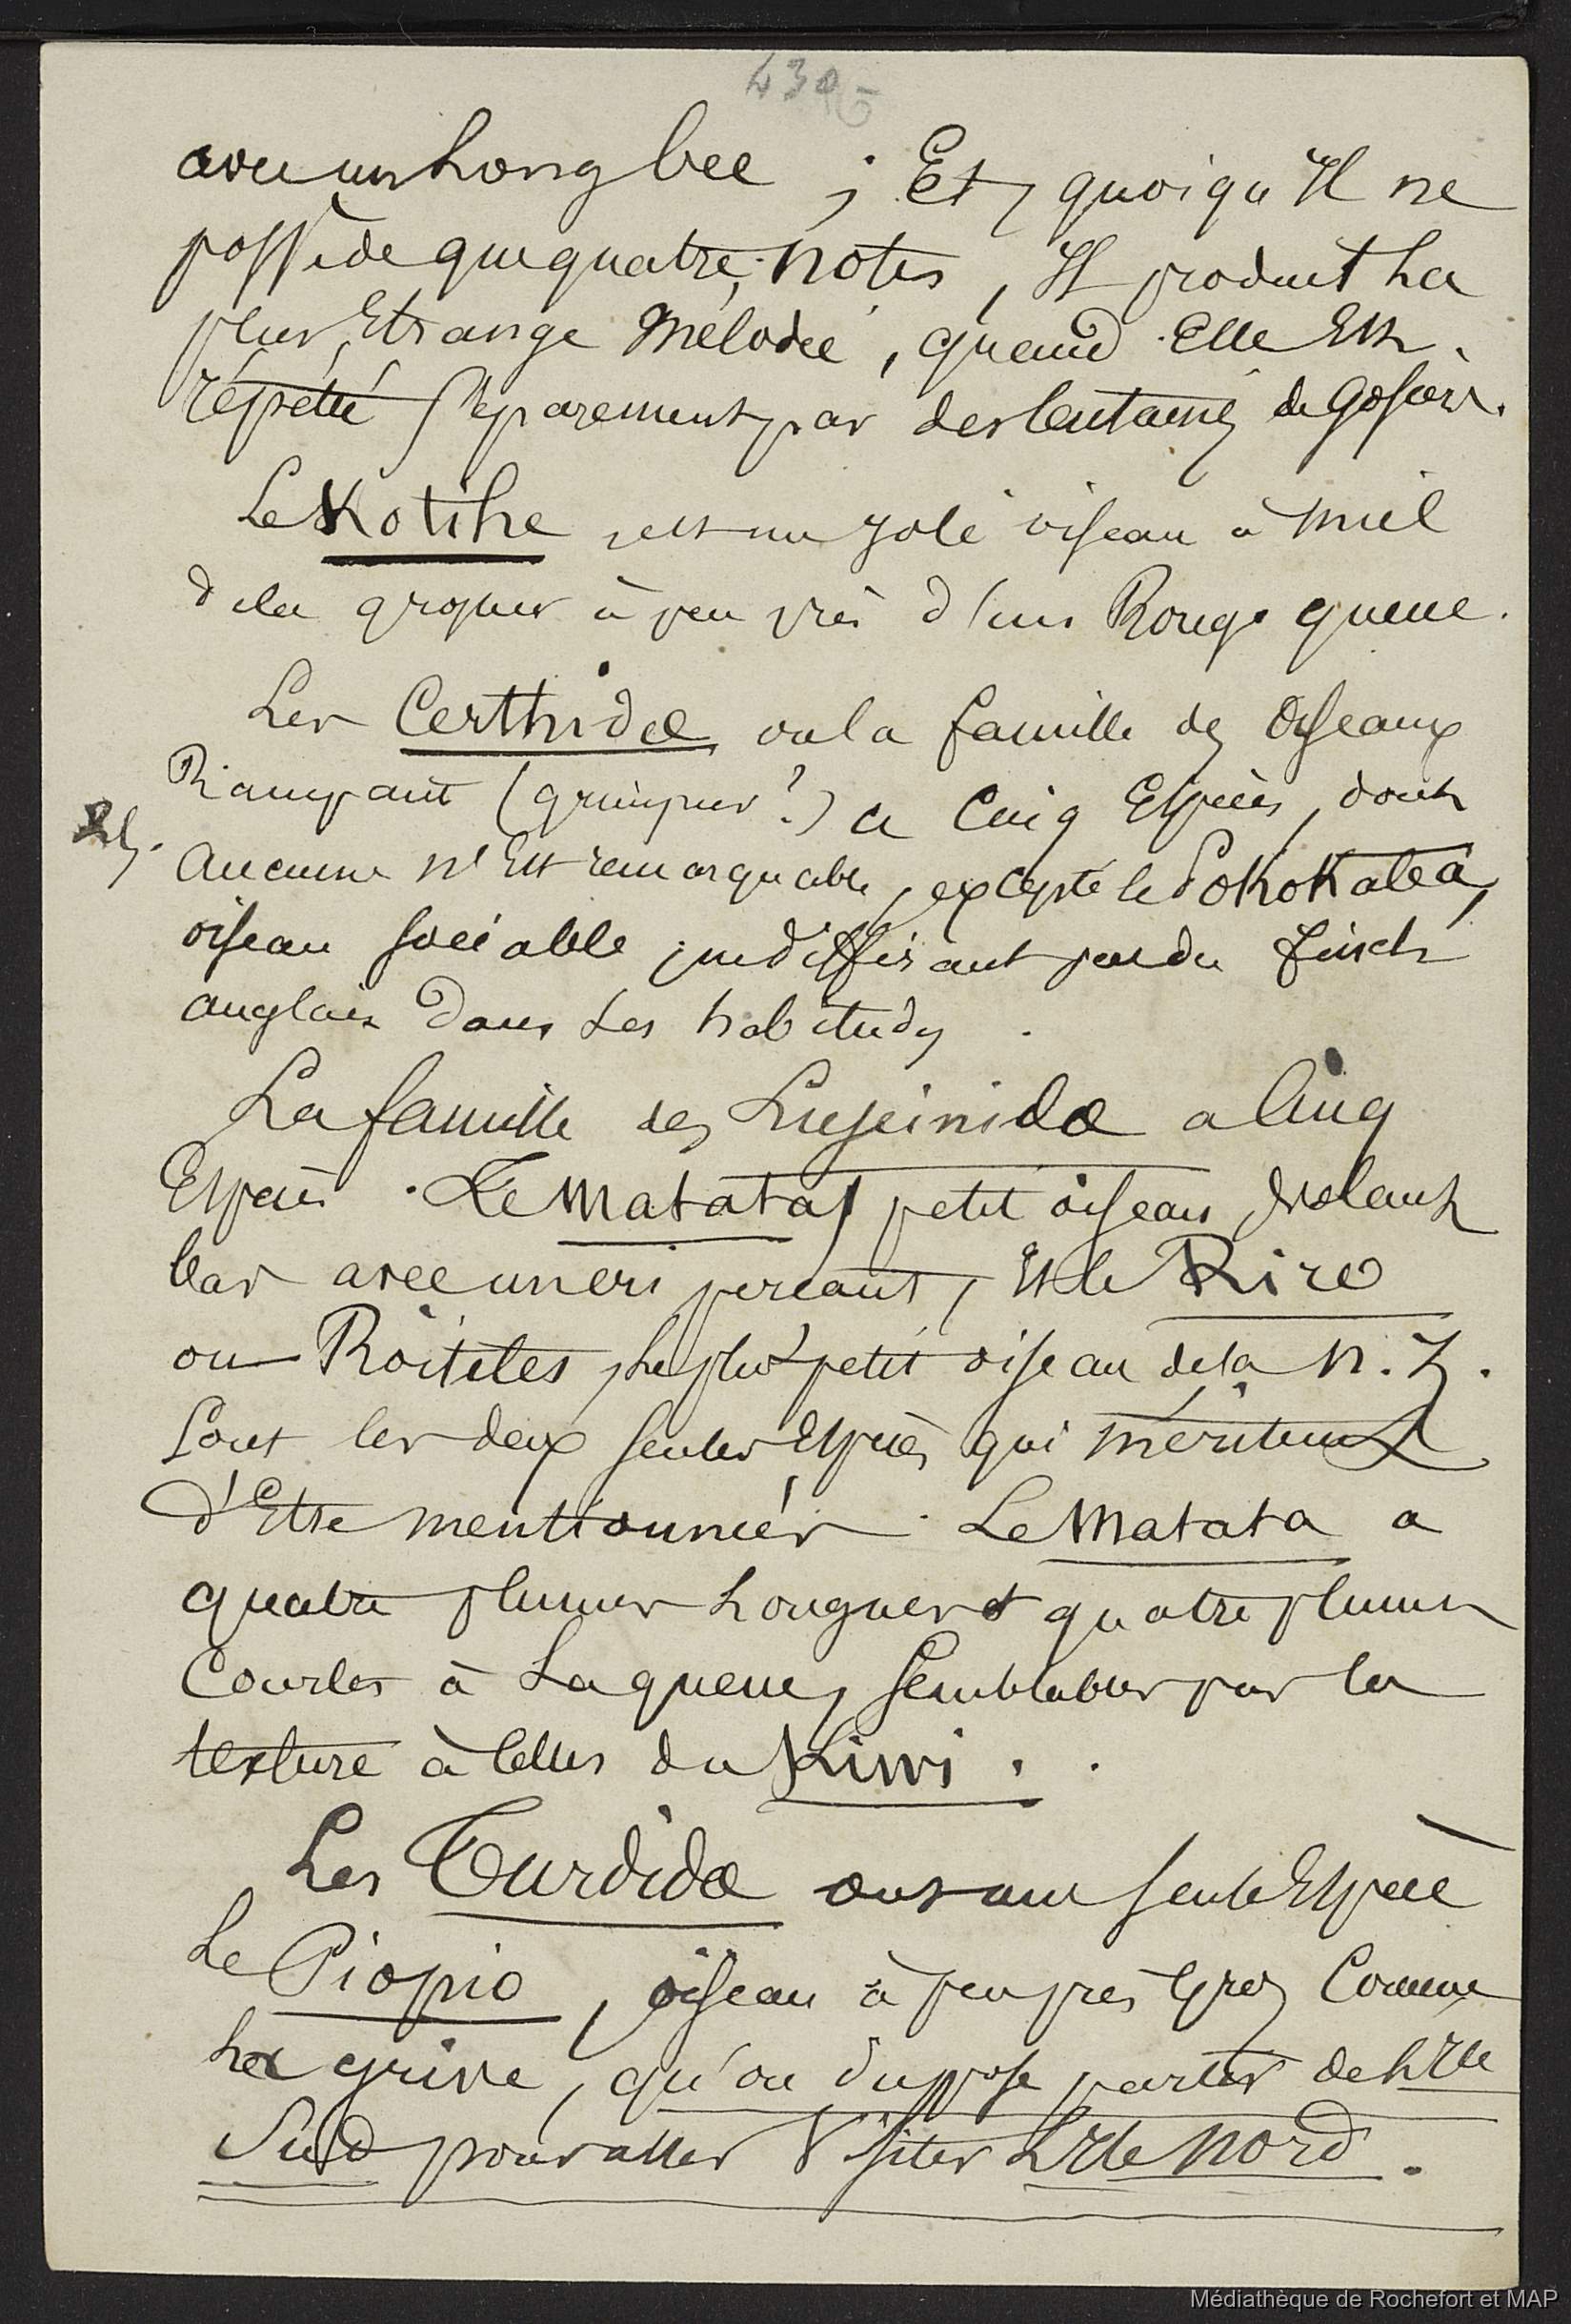 430
avec un Long bec ; Et, quoiqu'Il ne
possède que quatre notes, Il produit La
plus Etrange Mélodie, quand Elle Est
répétée séparement par des Centaines de Gosiers.
Le Kotihe, est un joli oiseau à miel
de la grosseur à peu près d'un Rouge queue.
Les Certhidæ ou la famille des Oiseaux
Rampant (grimpeur ?) a Cinq Espèces, dont
Aucune n'Est remarquable, excepté le Pokokatea,
oiseau sociable, ne différant pas du finch
anglais Dans Ses habitudes.
La famille des Luscinidæ a Cinq
Espèces. Le Matata, petit oiseau, volant
bas avec un cri perçant, Et le Riro
ou Roitelet, Le plus petit oiseau de la N. Z.
Sont les deux seules Espèces qui méritent
d'Etre mentionnées. Le Matata a
quatre plumes Longues et quatre plumes
Courtes à La queue, Semblables par la
texture à Celles du Kiwi.
Les Turdidæ ont une seule Espèce
Le Piopio, oiseau à peu près Gros Comme
La grive, qu'on suppose partir de L'Ile
Sud pour aller Visiter L'Ile Nord.
Médiathèque de Rochefort et MAP